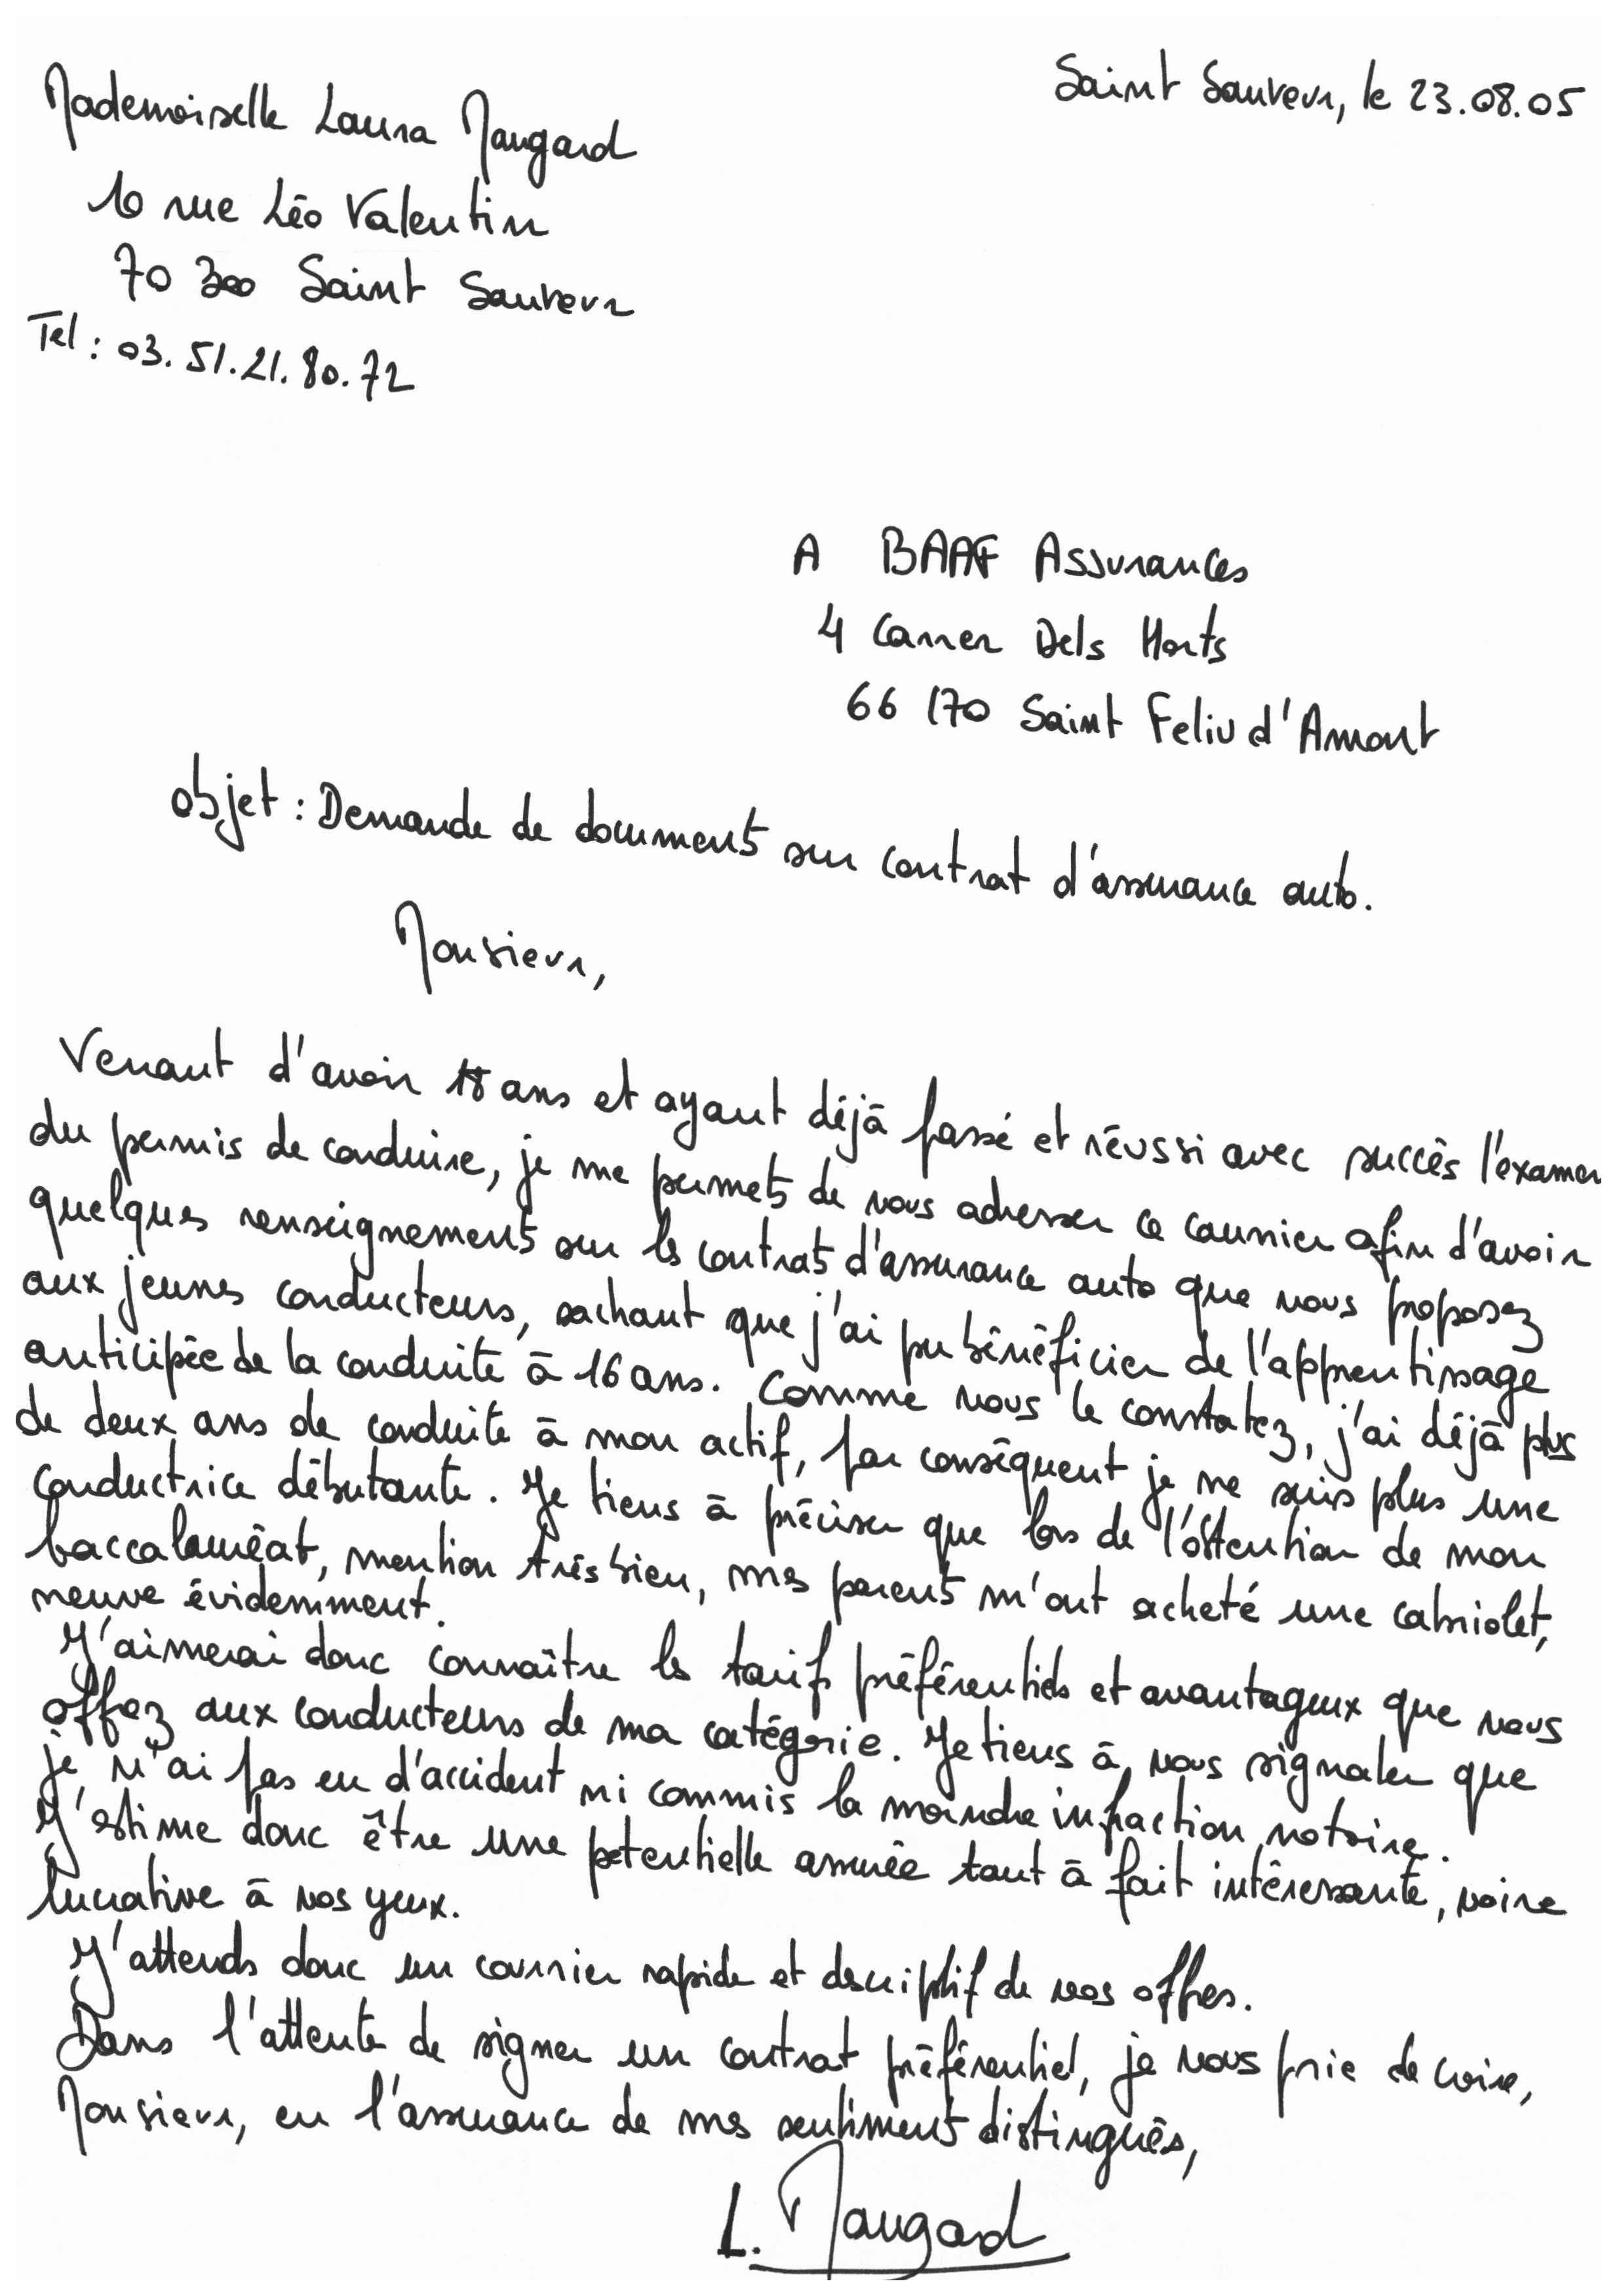 Saint Sauveur, le 23.08.05
Mademoiselle Laura Maugard
10 rue Léo Valentin
70 300 Saint Sauveur
Tel : 03.51.21.80.72
A BAAF Assurances
4 Carrer Dels Horts
66 170 Saint Feliu d'Amont
Objet : Demande de documents sur contrat d'assurance auto.
Monsieur,
Venant d'avoir 18 ans et ayant déjà passé et réussi avec succès l'examen
du permis de conduire, je me permets de vous adresser ce courrier afin d'avoir
quelques renseignements sur les contrats d'assurance auto que vous proposez
aux jeunes conducteurs, sachant que j'ai pu bénéficier de l'apprentissage
anticipée de la conduite à 16 ans. Comme vous le constatez, j'ai déjà plus
de deux ans de conduite à mon actif, par conséquent je ne suis plus une
conductrice débutante. Je tiens à préciser que lors de l'obtention de mon
baccalauréat, mention très bien, mes parents m'ont acheté une cabriolet,
neuve évidemment.
J'aimerai donc connaître les tarifs préférentiels et avantageux que vous
offrez aux conducteurs de ma catégorie. Je tiens à vous signaler que
je n'ai pas eu d'accident ni commis la moindre infraction notoire.
J'estime donc être une potentielle assurée tout à fait intéressante, voire
lucrative à vos yeux.
J'attends donc un courrier rapide et descriptif de vos offres.
Dans l'attente de signer un contrat préférentiel, je vous prie de croire,
Monsieur, en l'assurance de mes sentiments distingués,
L. Maugard